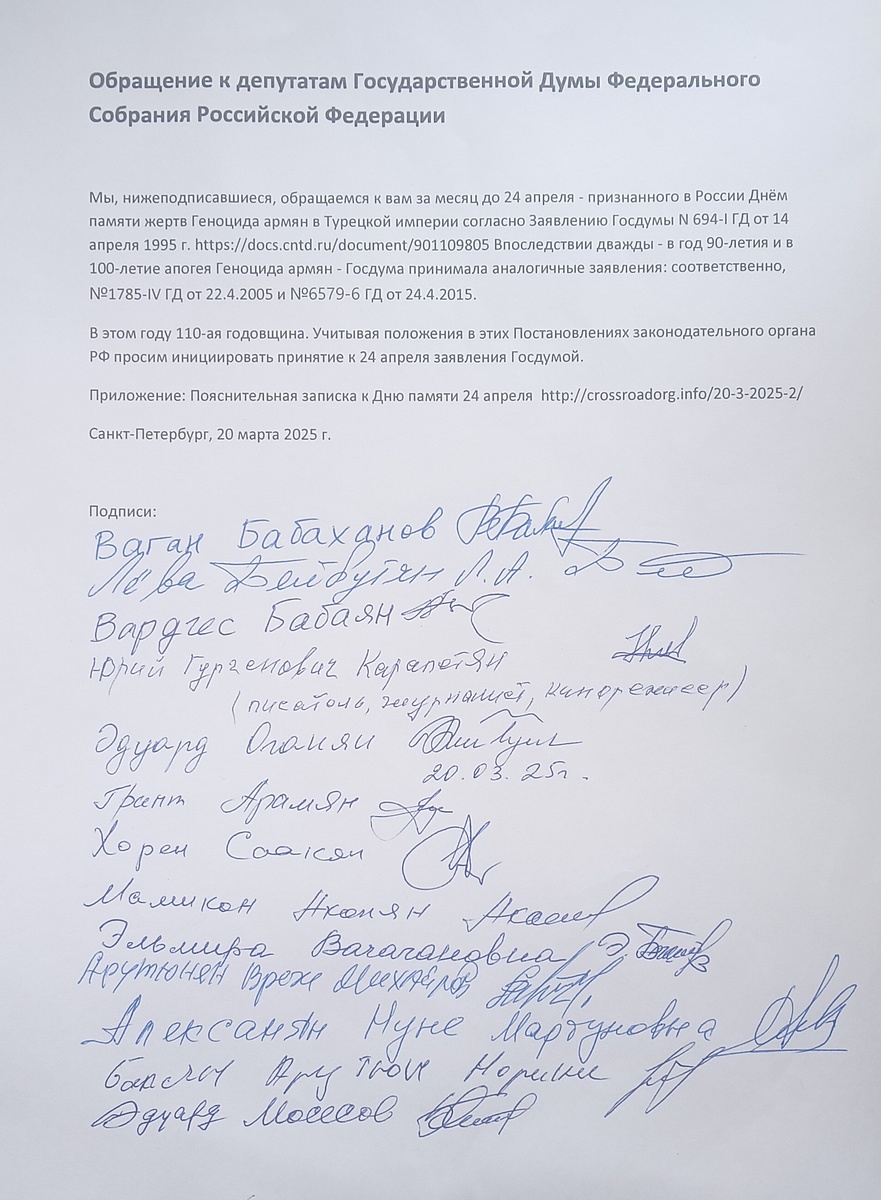 Обращение к депутатам Государственной Думы Федерального
Собрания Российской Федерации
Мы, нижеподписавшиеся, обращаемся к вам за месяц до 24 апреля - признанного в России Днём
памяти жертв Геноцида армян в Турецкой империи согласно Заявлению Госдумы N 694-I ГД от 14
апреля 1995 г. https://docs.cntd.ru/document/901109805 Впоследствии дважды - в год 90-летия и в
100-летие апогея Геноцида армян - Госдума принимала аналогичные заявления: соответственно,
№1785-IV ГД от 22.4.2005 и №6579-6 ГД от 24.4.2015.
В этом году 110-ая годовщина. Учитывая положения в этих Постановлениях законодательного органа
РФ просим инициировать принятие к 24 апреля заявления Госдумой.
Приложение: Пояснительная записка к Дню памяти 24 апреля http://crossroadorg.info/20-3-2025-2/
Санкт-Петербург, 20 марта 2025 г.
Подписи:
Ваган Бабаханов
Лёва Бейбутян Л. А.
Вардгес Бабаян
Юрий Гургенович Карапетян
(писатель, журналист, кинорежиссер)
Эдуард Оганян
20.03.25г.
Грант Арамян
Хорен Саакян
Мамикон Акопян
Эльмира Вачагановна
Арутюнян Вреж
Алексанян Нуне Мартуновна
Эдуард Мосесов